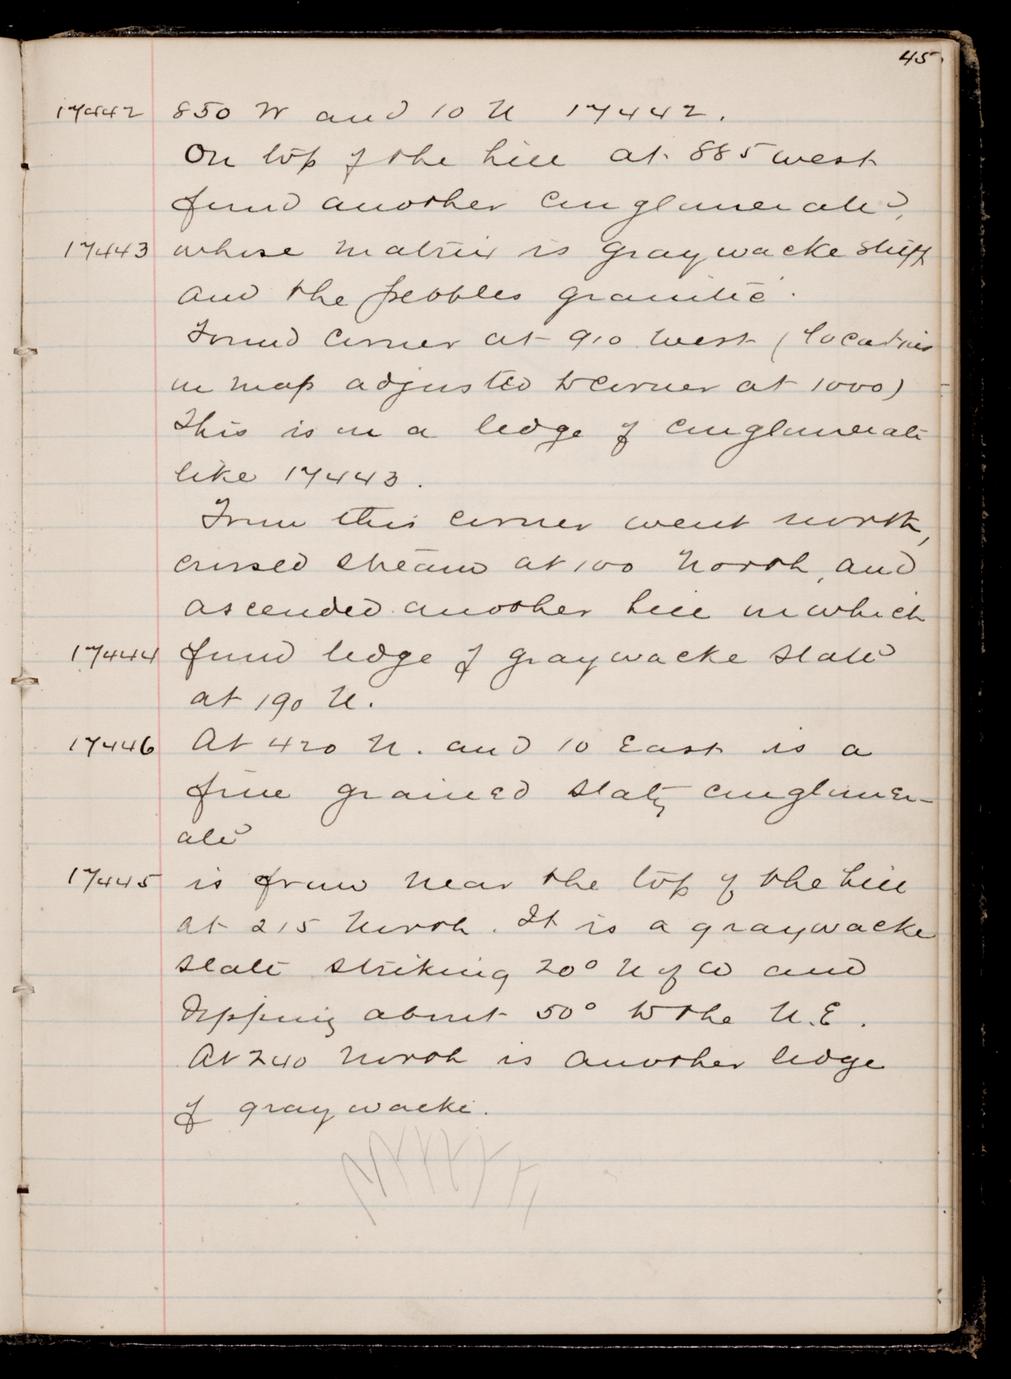 45.
17442 850 W and 10 N 17442.
On top of the hill at 885 west
found another conglomerate,
17443 whose matrix is graywacke stuff
and the pebbles granitic.
Found corner at 910 West (locations
on map adjusted to corner at 1000)
This is on a ledge of conglomerate
like 17443.
From this corner went north,
crossed stream at 100 North, and
ascended another hill on which
17444 found ledge of graywacke slate
at 190 N.
17446 At 420 N. and 10 East is a
fine grained slaty conglomer-
ate
17445 is from near the top of the hill
at 215 North. It is a graywacke
slate striking 20° N of W and
dipping about 50° to the N.E.
At 240 North is another ledge
of graywacke.